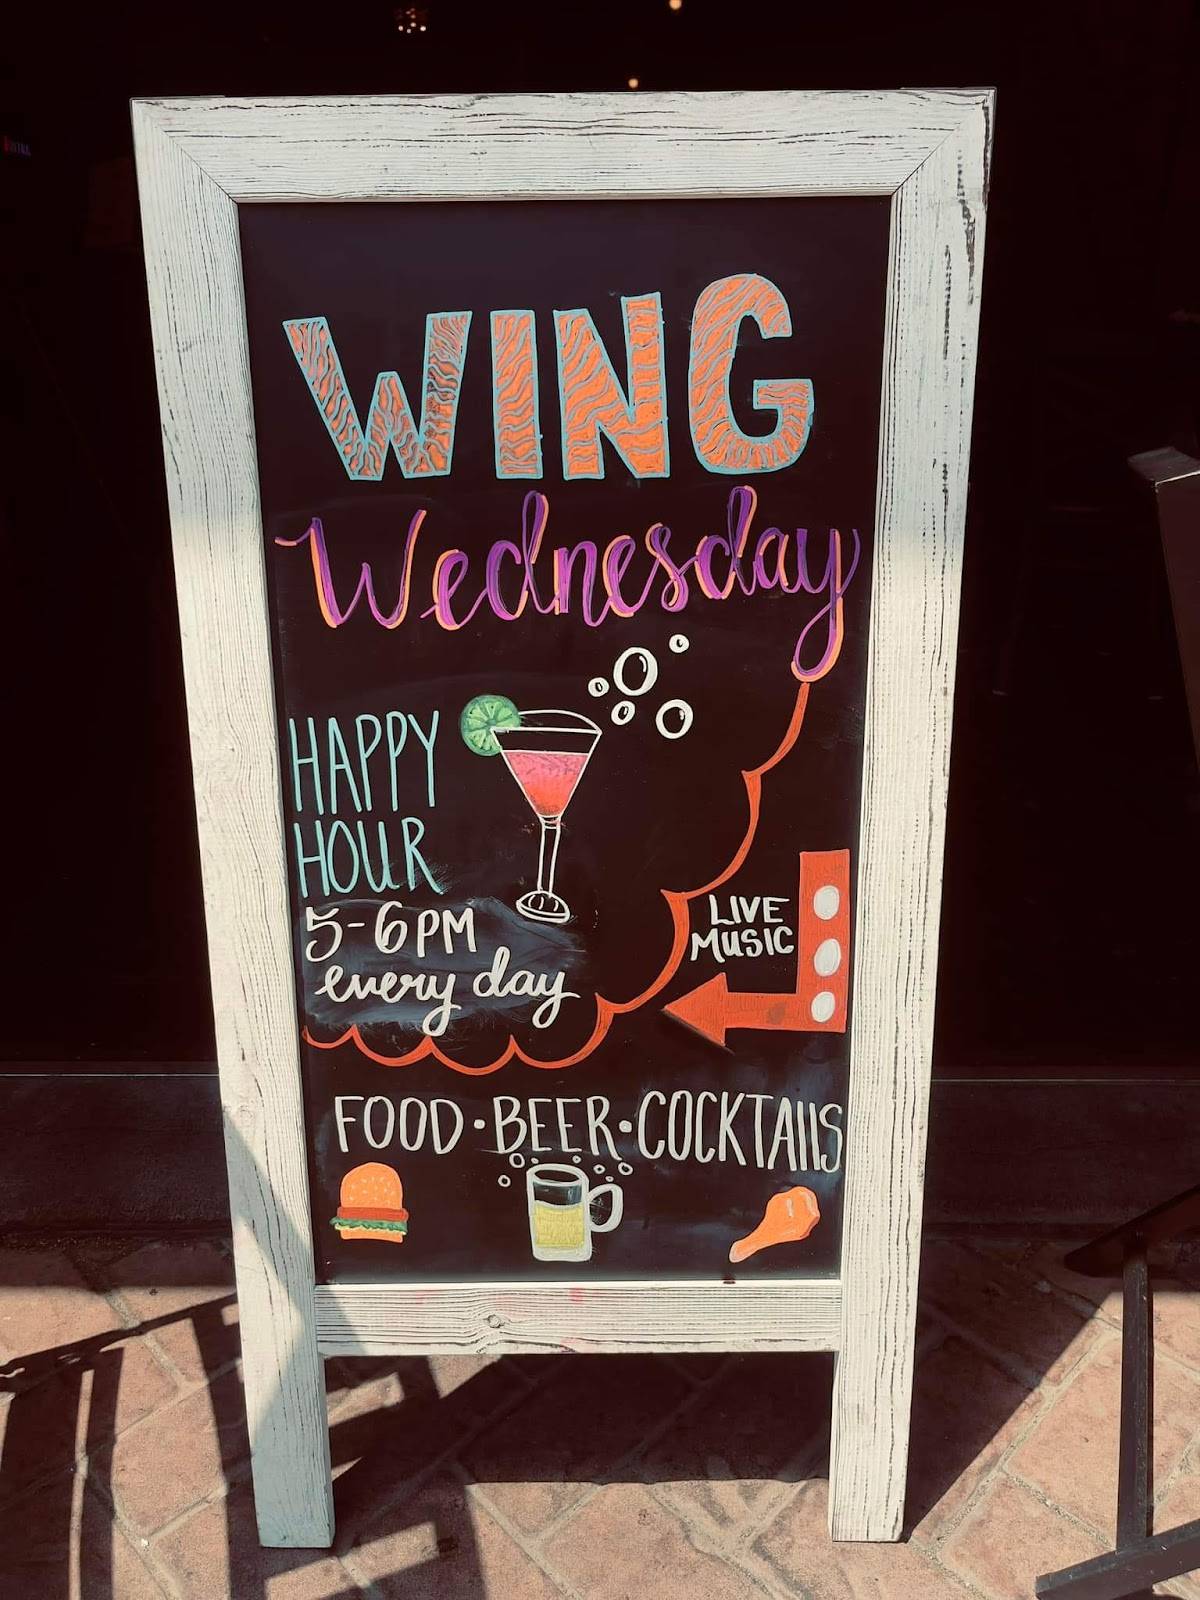 WING
Wednesday
HAPPY
HOUR
5-6PM
every day
LIVE
MUSIC
FOOD • BEER • COCKTAIlS